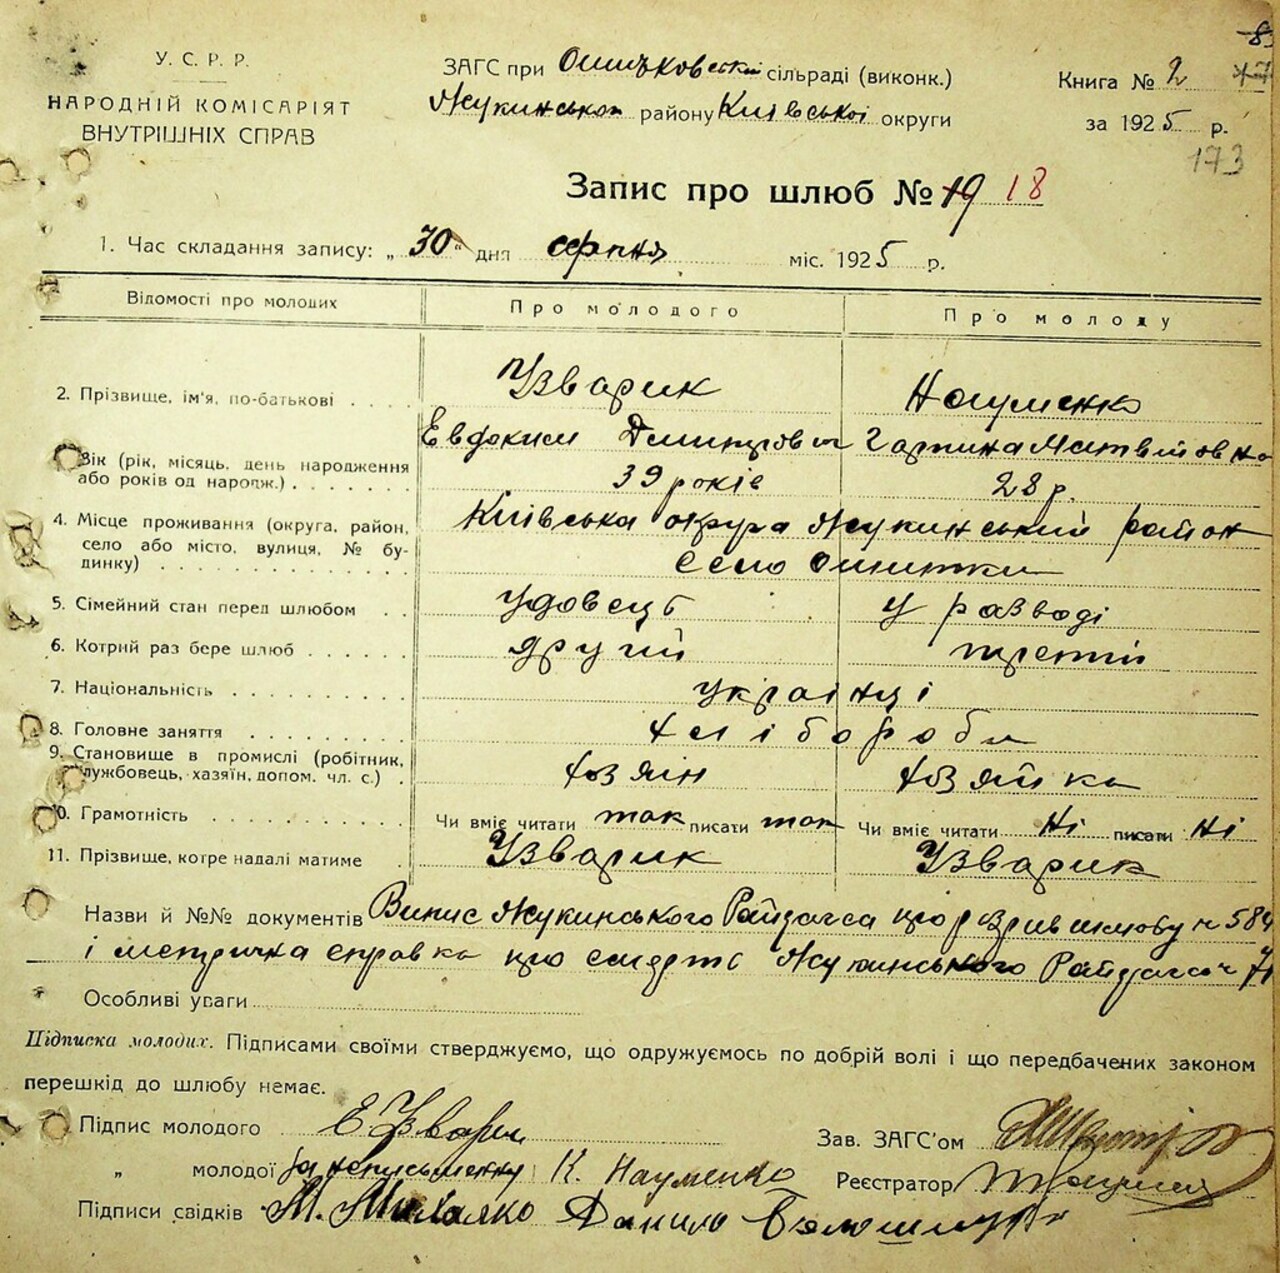 У. С. Р. Р.
НАРОДНІЙ КОМІСАРІЯТ
ВНУТРІШНІХ СПРАВ
ЗАГС при сільраді (виконк.)
Жукинськог району Київської округи
Книга № 2
за 1925 р.
173
Запис про шлюб № 19 18
1. Час складання запису: „30" дня серпня міс. 1925 р.
Відомості про молодих Про молодого Про молоду
Узварик Науменко
2. Прізвище, ім'я, по-батькові
Евдоким Дмитрович Гарпина Матвійовна
Вік (рік, місяць, день народження
або років од народж.) 39 років 28 р.
4. Місце проживання (округа, район, Київська округа Жукинський район
село або місто, вулиця, № бу-
динку) село Ошитки
5. Сімейний стан перед шлюбом удовець у разводі
6. Котрий раз бере шлюб другий третій
7. Національність українці
8. Головне заняття хлібороби
9. Становище в промислі (робітник,
службовець, хазяїн, допом. чл. с.) хазяїн хазяйка
10. Грамотність Чи вміє читати так писати так Чи вміє читати Ні писати Ні
11. Прізвище, котре надалі матиме Узварик Узварик
Назви й №№ документів Випис Жукинського Райзагса про розрив шлюбу № 584
і метрична справка про смерть Жукинського Райзагса № 71
Особливі уваги
Підписка молодих. Підписами своїми стверджуємо, що одружуємось по добрій волі і що передбачених законом
перешкід до шлюбу немає.
Підпис молодого Е Узварик
Зав. ЗАГС'ом
„ молодої за неписьменну К. Науменко
Реєстратор
Підписи свідків М. Данило